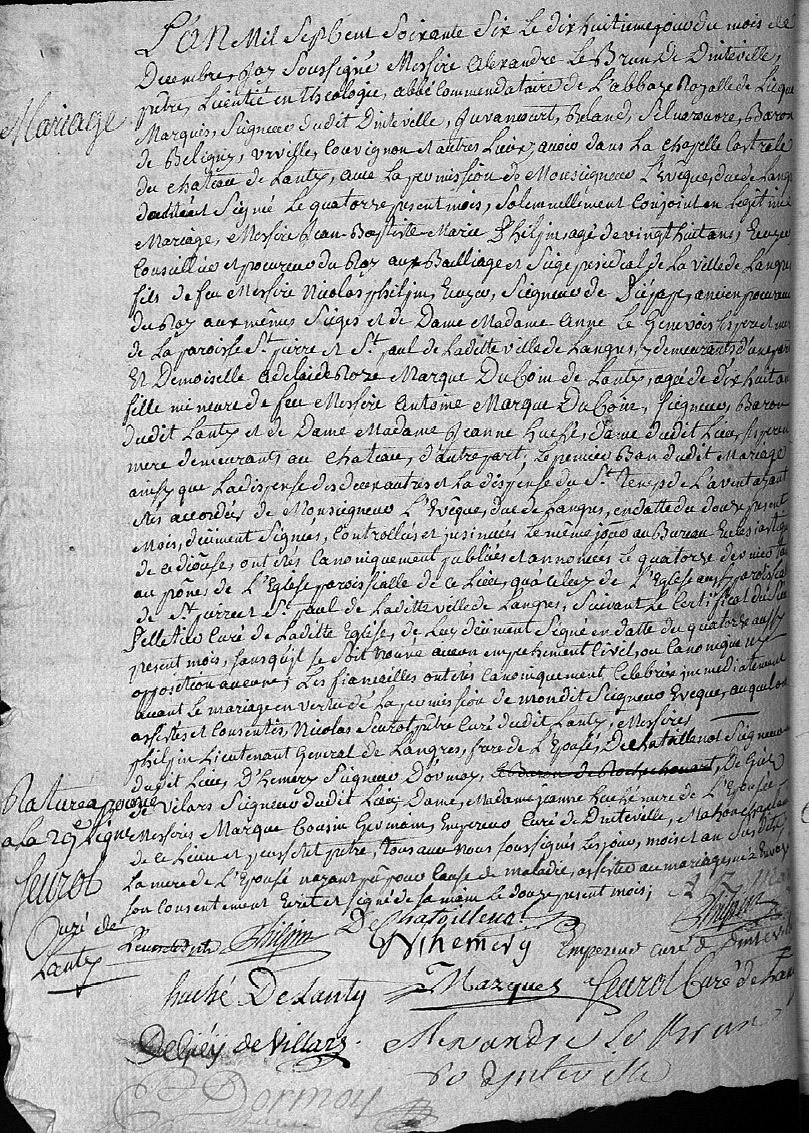 L'an Mil Sept Cent Soixante Six le dix huitieme jour du mois de
Decembre, Par Soussigné Messire Alexandre Le Brun De Dinteville,
prêtre, Licentié en theologie, abbé Commendataire de L'abbaye Royalle de
Mariage
Marquis, Seigneur dudit Dinteville, Juvancourt, Silvarouvre, Baron
de Beligny, Urville, Couvignon et autres Lieux, avoir dans la chapelle Castrale
du chateau de Lanty, avec la permission de Monseigneur L'Evêque, duc de Langres
dattée et Signé le quatorze present mois, Solemnellement Conjoint en Legitime
Mariage, Messire Jean-Baptiste-Marie Philpin, agé de vingt huit ans, Ecuyer,
Conseiller et procureur du Roy aux Bailliage et Siege presidial de La ville de Langres
fils de feu Messire Nicolas philpin, Ecuyer, Seigneur de Piépape, ancien procureur
du Roy aux mêmes Sieges et de Dame Madame Anne Le Genevois ses pere et mere
de La paroisse St. pierre et St. paul de Laditte ville de Langres, y demeurants d'une part
Et Demoiselle Adelaide Roze Marque Du Coin de Lanty, agée de dix huit ans
fille mineure de feu Messire Antoine Marque Du Coin, Seigneur, Baron
dudit Lanty et de Dame Madame Jeanne huché, Dame dudit Lieu, ses pere et
mere demeurants au chateau, d'autre part, le premier Ban dudit Mariage
ainsy que La dispense des deux autres et La dispense du St. temps de L'avent ayant
étés accordés de Monseigneur L'Evêque, duc de Langres, en datte du douze present
Mois, düement Signés, Controllés et insinués le même jour au Bureau Ecclesiastique
de ce diocese, ont étés Canoniquement publiés et annoncés le quatorze dernier tant
au prône de L'Eglise paroissialle de ce Lieu, qu'a celuy de L'Eglise aussy paroissialle
de St. pierre et St. paul de Laditte ville de Langres, Suivant le Certificat du Sieur
Pelletier Curé de Laditte Eglise, de Luy düement Signé en datte du quatorze aussy
present mois, sans qu'il se soit trouvé aucun empechement Civil, ou Canonique ny
opposition aucune; Les fiancailles ont etés Canoniquement Celebrées immediatement
avant le mariage en vertu de La permission de mondit Seigneur Evêque, auquel ont
assistés et Consentés, Nicolas Seurot prêtre Curé dudit Lanty, Messires
philpin Lieutenant General de Langres, frere de L'Epoux, De chatillenot Seigneur
dudit Lieu, D'hemery Seigneur D'ormoy, et Baron de Rochechouart, De Giey
Rature approuvée
a la 29e Ligne
Seurot
Curé de
Lanty
de Vilars Seigneur dudit Lieu, Dame, Madame jeanne huché mere de L'Epouse
Messires Marque Cousin Germain, Empereur Curé de Dinteville,
de ce Lieu et prêtre, tous avec nous soussignés les jour, mois et an Susdits
La mere de L'Epoux n'ayant pû pour cause de maladie, assister au mariage, a Envoyé
son Consentement Ecrit et Signé de sa main le douze present mois;
Philpin De Chatoillenot Philpin
D'hemery Empereur curé de Dinteville
huché De Lanty Marques Seurot Curé de Lanty
De Giey de Villars Alexandre Le Brun
de Dinteville
Dormoy